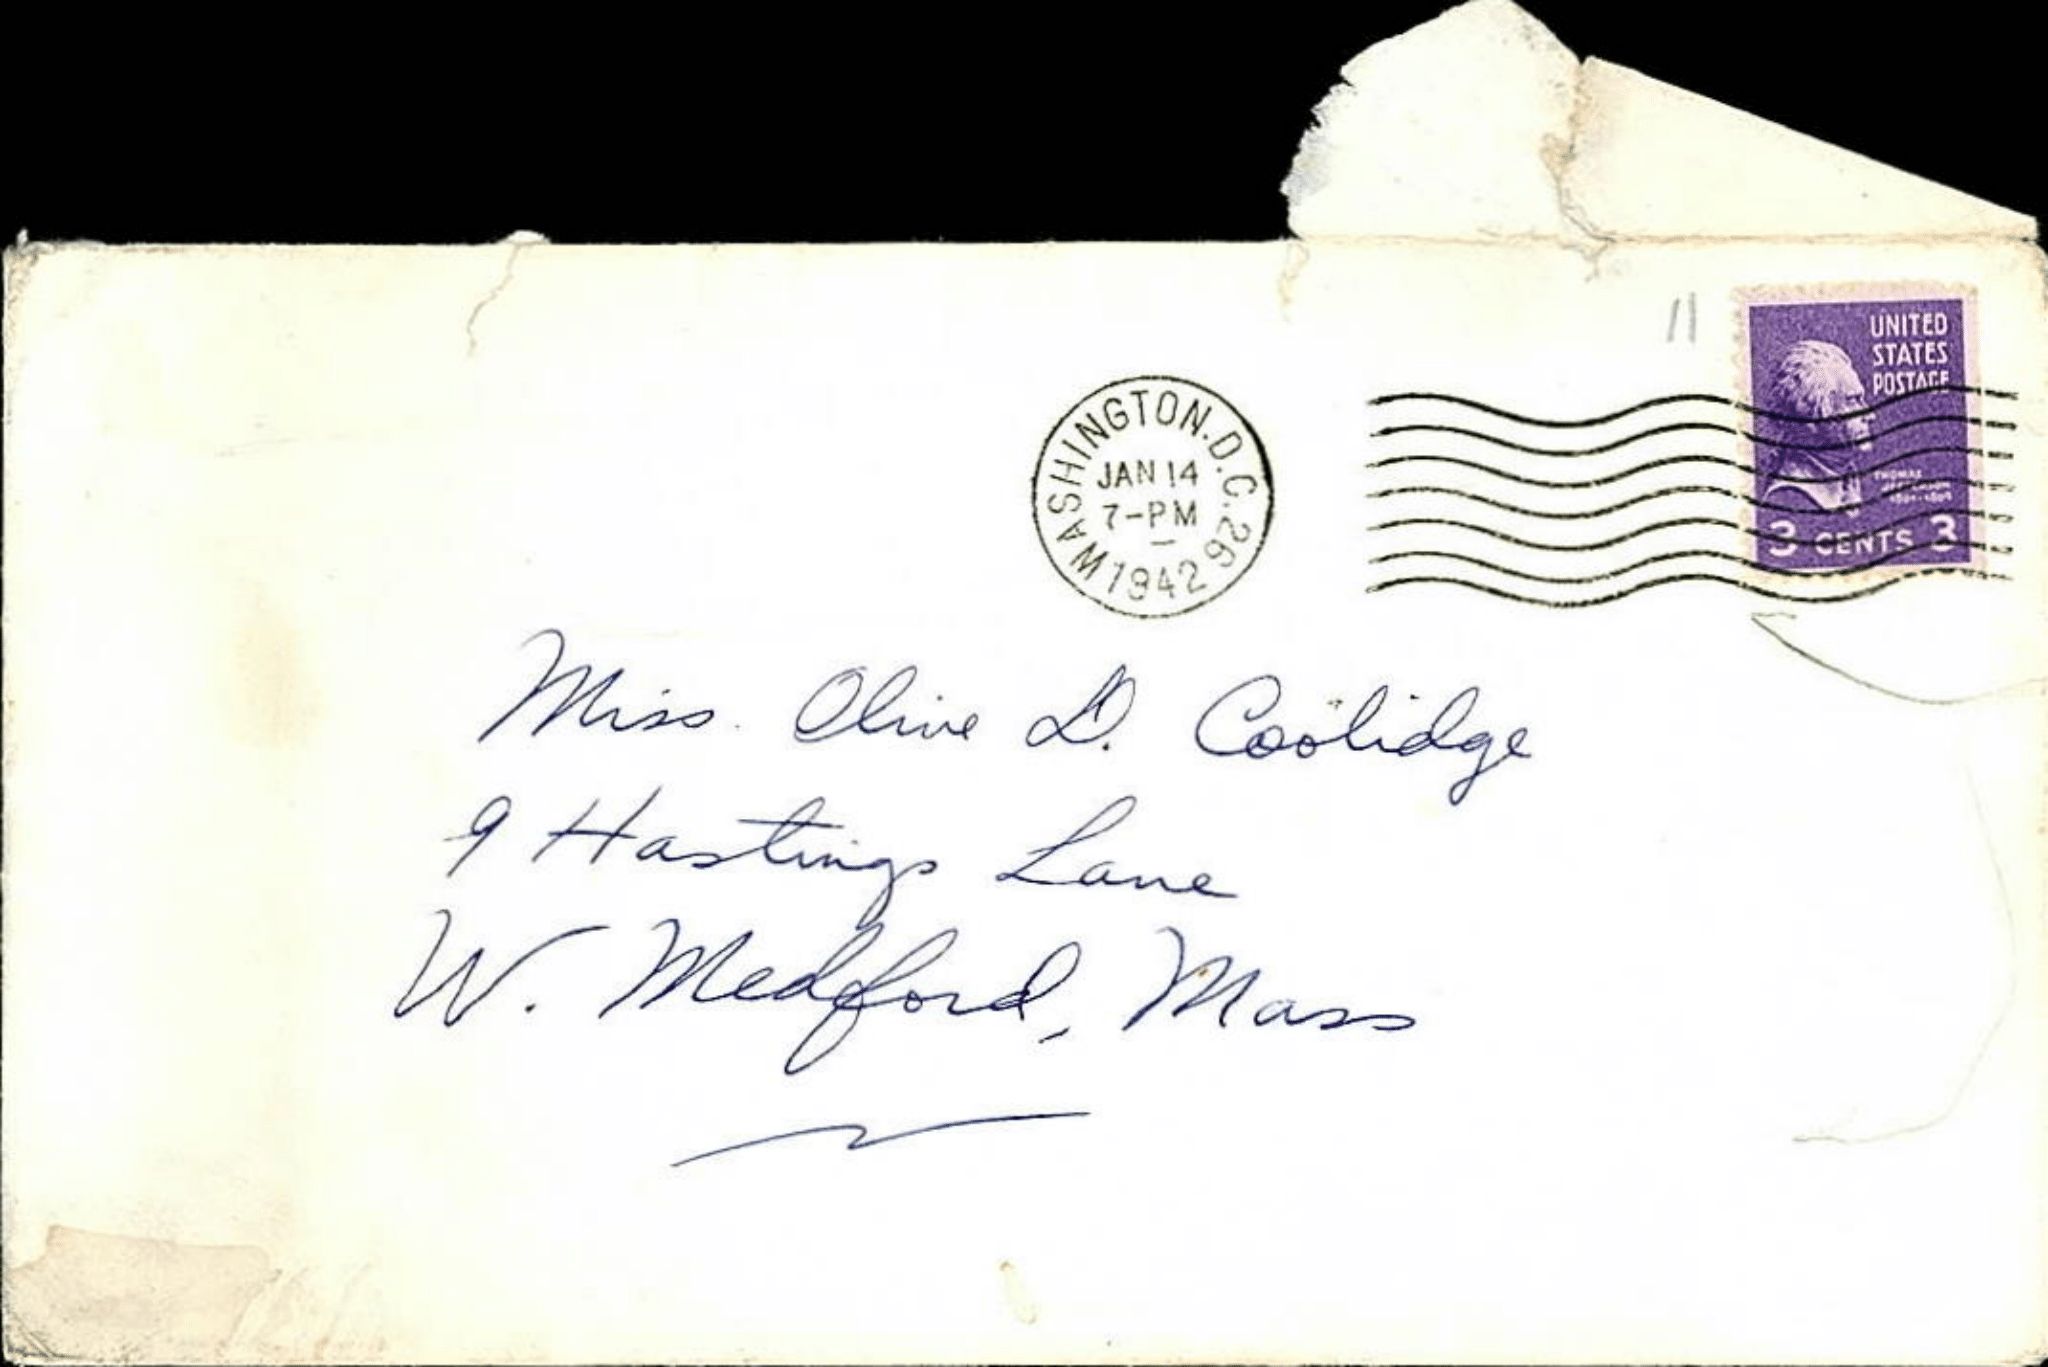 11
UNITED
STATES
POSTAGE
THOMAS
JEFFERSON
3 CENTS 3
WASHINGTON, D.C. 26
JAN 14
7-PM
1942
Miss. Olive D. Coolidge
9 Hastings Lane
W. Medford, Mass